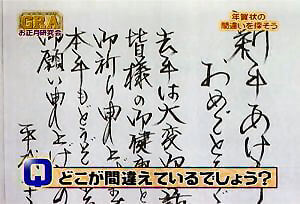 GRA
お正月研究会
年賀状の
間違いを探そう
新年あけまして
おめでとうござ
去年は大変御世話
皆様の御健康と
御祈り申し上げ
本年もどうぞ
御願い申し上げ
平成
Q
どこが間違えているでしょう?